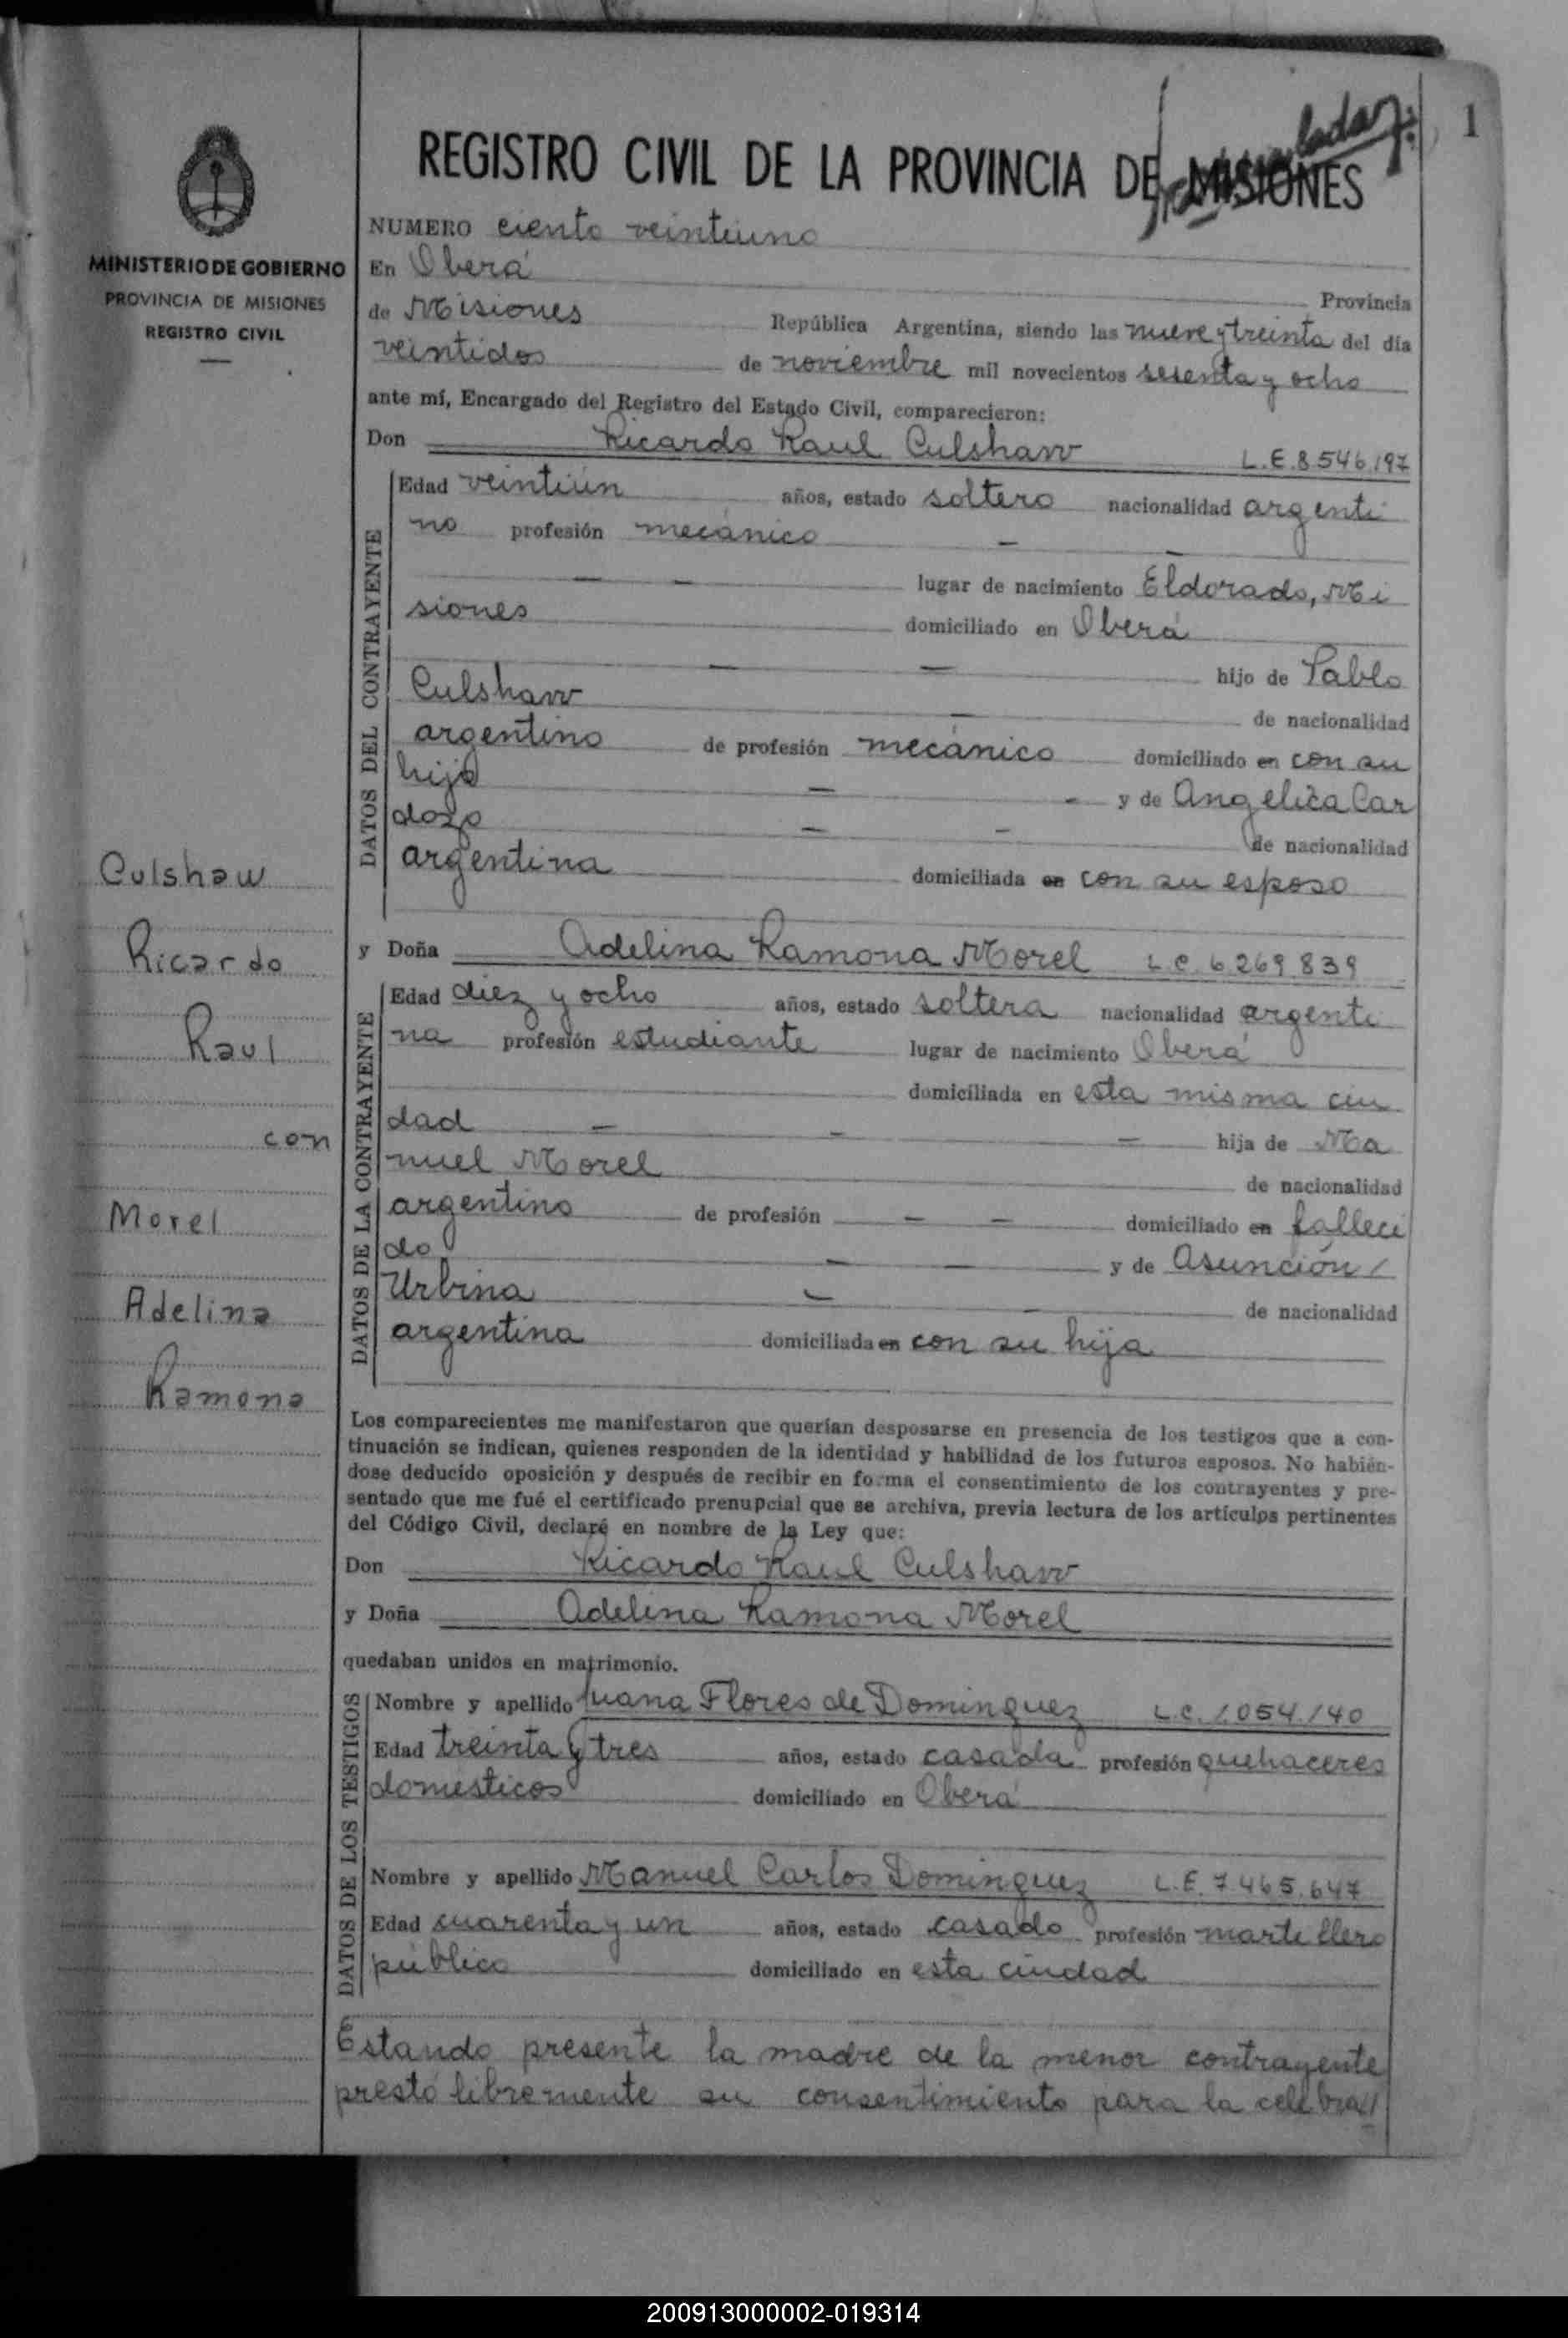 1
REGISTRO CIVIL DE LA PROVINCIA DE MISIONES
MINISTERIO DE GOBIERNO
PROVINCIA DE MISIONES
REGISTRO CIVIL
NUMERO ciento veintiuno
En Oberá
Provincia
de Misiones República Argentina, siendo las nueve y treinta del día
veintidos de noviembre mil novecientos sesenta y ocho
ante mí, Encargado del Registro del Estado Civil, comparecieron:
Don Ricardo Raul Culshaw L.E. 8.546.197
DATOS DEL CONTRAYENTE
Edad veintiún años, estado soltero nacionalidad argenti
no profesión mecánico — —
— — lugar de nacimiento Eldorado, Mi
siones domiciliado en Oberá
— — hijo de Pablo
Culshaw — de nacionalidad
argentino de profesión mecánico domiciliado en con su
hijo — - y de Angelica Car
dozo — — de nacionalidad
argentina domiciliada en con su esposo
y Doña Adelina Ramona Morel L.C. 6.269.839
DATOS DE LA CONTRAYENTE
Edad diez y ocho años, estado soltera nacionalidad argenti
na profesión estudiante lugar de nacimiento Oberá
domiciliada en esta misma ciu
dad — — — hija de Ma
nuel Morel de nacionalidad
argentino de profesión — — domiciliado en falleci
do — — y de Asunción /
Urbina — — de nacionalidad
argentina domiciliada en con su hija
Culshaw
Ricardo
Raul
con
Morel
Adelina
Ramona
Los comparecientes me manifestaron que querían desposarse en presencia de los testigos que a con-
tinuación se indican, quienes responden de la identidad y habilidad de los futuros esposos. No habién-
dose deducido oposición y después de recibir en forma el consentimiento de los contrayentes y pre-
sentado que me fué el certificado prenupcial que se archiva, previa lectura de los artículos pertinentes
del Código Civil, declaré en nombre de la Ley que:
Don Ricardo Raul Culshaw
y Doña Adelina Ramona Morel
quedaban unidos en matrimonio.
DATOS DE LOS TESTIGOS
Nombre y apellido Juana Flores de Dominguez L.C. 1.054.140
Edad treinta y tres años, estado casada profesión quehaceres
domésticos domiciliado en Oberá
Nombre y apellido Manuel Carlos Dominguez L.E. 7.465.647
Edad cuarenta y un años, estado casado profesión martillero
público domiciliado en esta ciudad
Estando presente la madre de la menor contrayente
prestó libremente su consentimiento para la celebra//
200913000002-019314